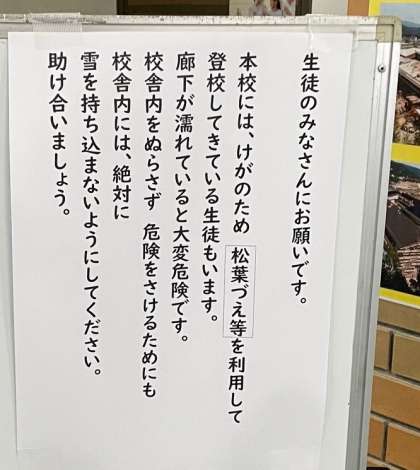 生徒のみなさんにお願いです。
本校には、けがのため 松葉づえ等を利用して
登校してきている生徒もいます。
廊下が濡れていると大変危険です。
校舎内をぬらさず 危険をさけるためにも
校舎内には、絶対に
雪を持ち込まないようにしてください。
助け合いましょう。